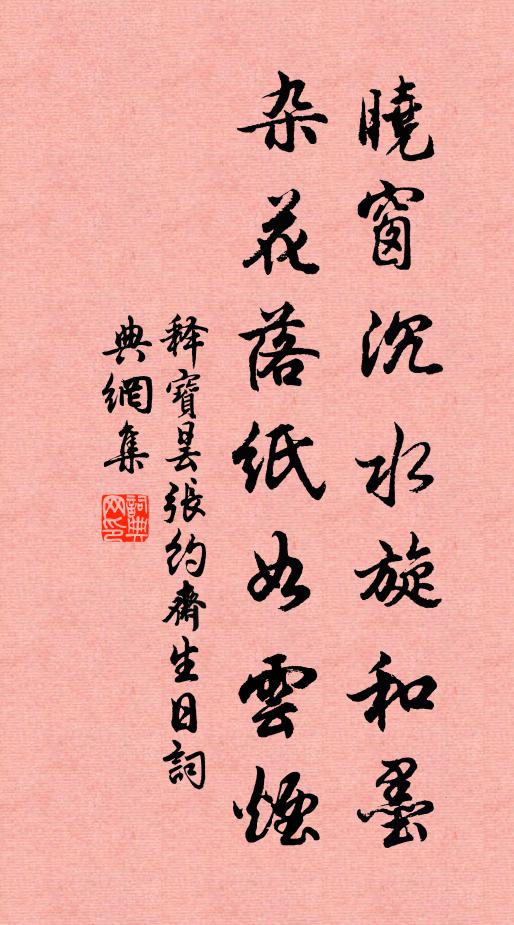 曉窗沉水旋和墨
杂花落紙如雲煙
释寶曇張約齋生日詞
典網集
詞典网印